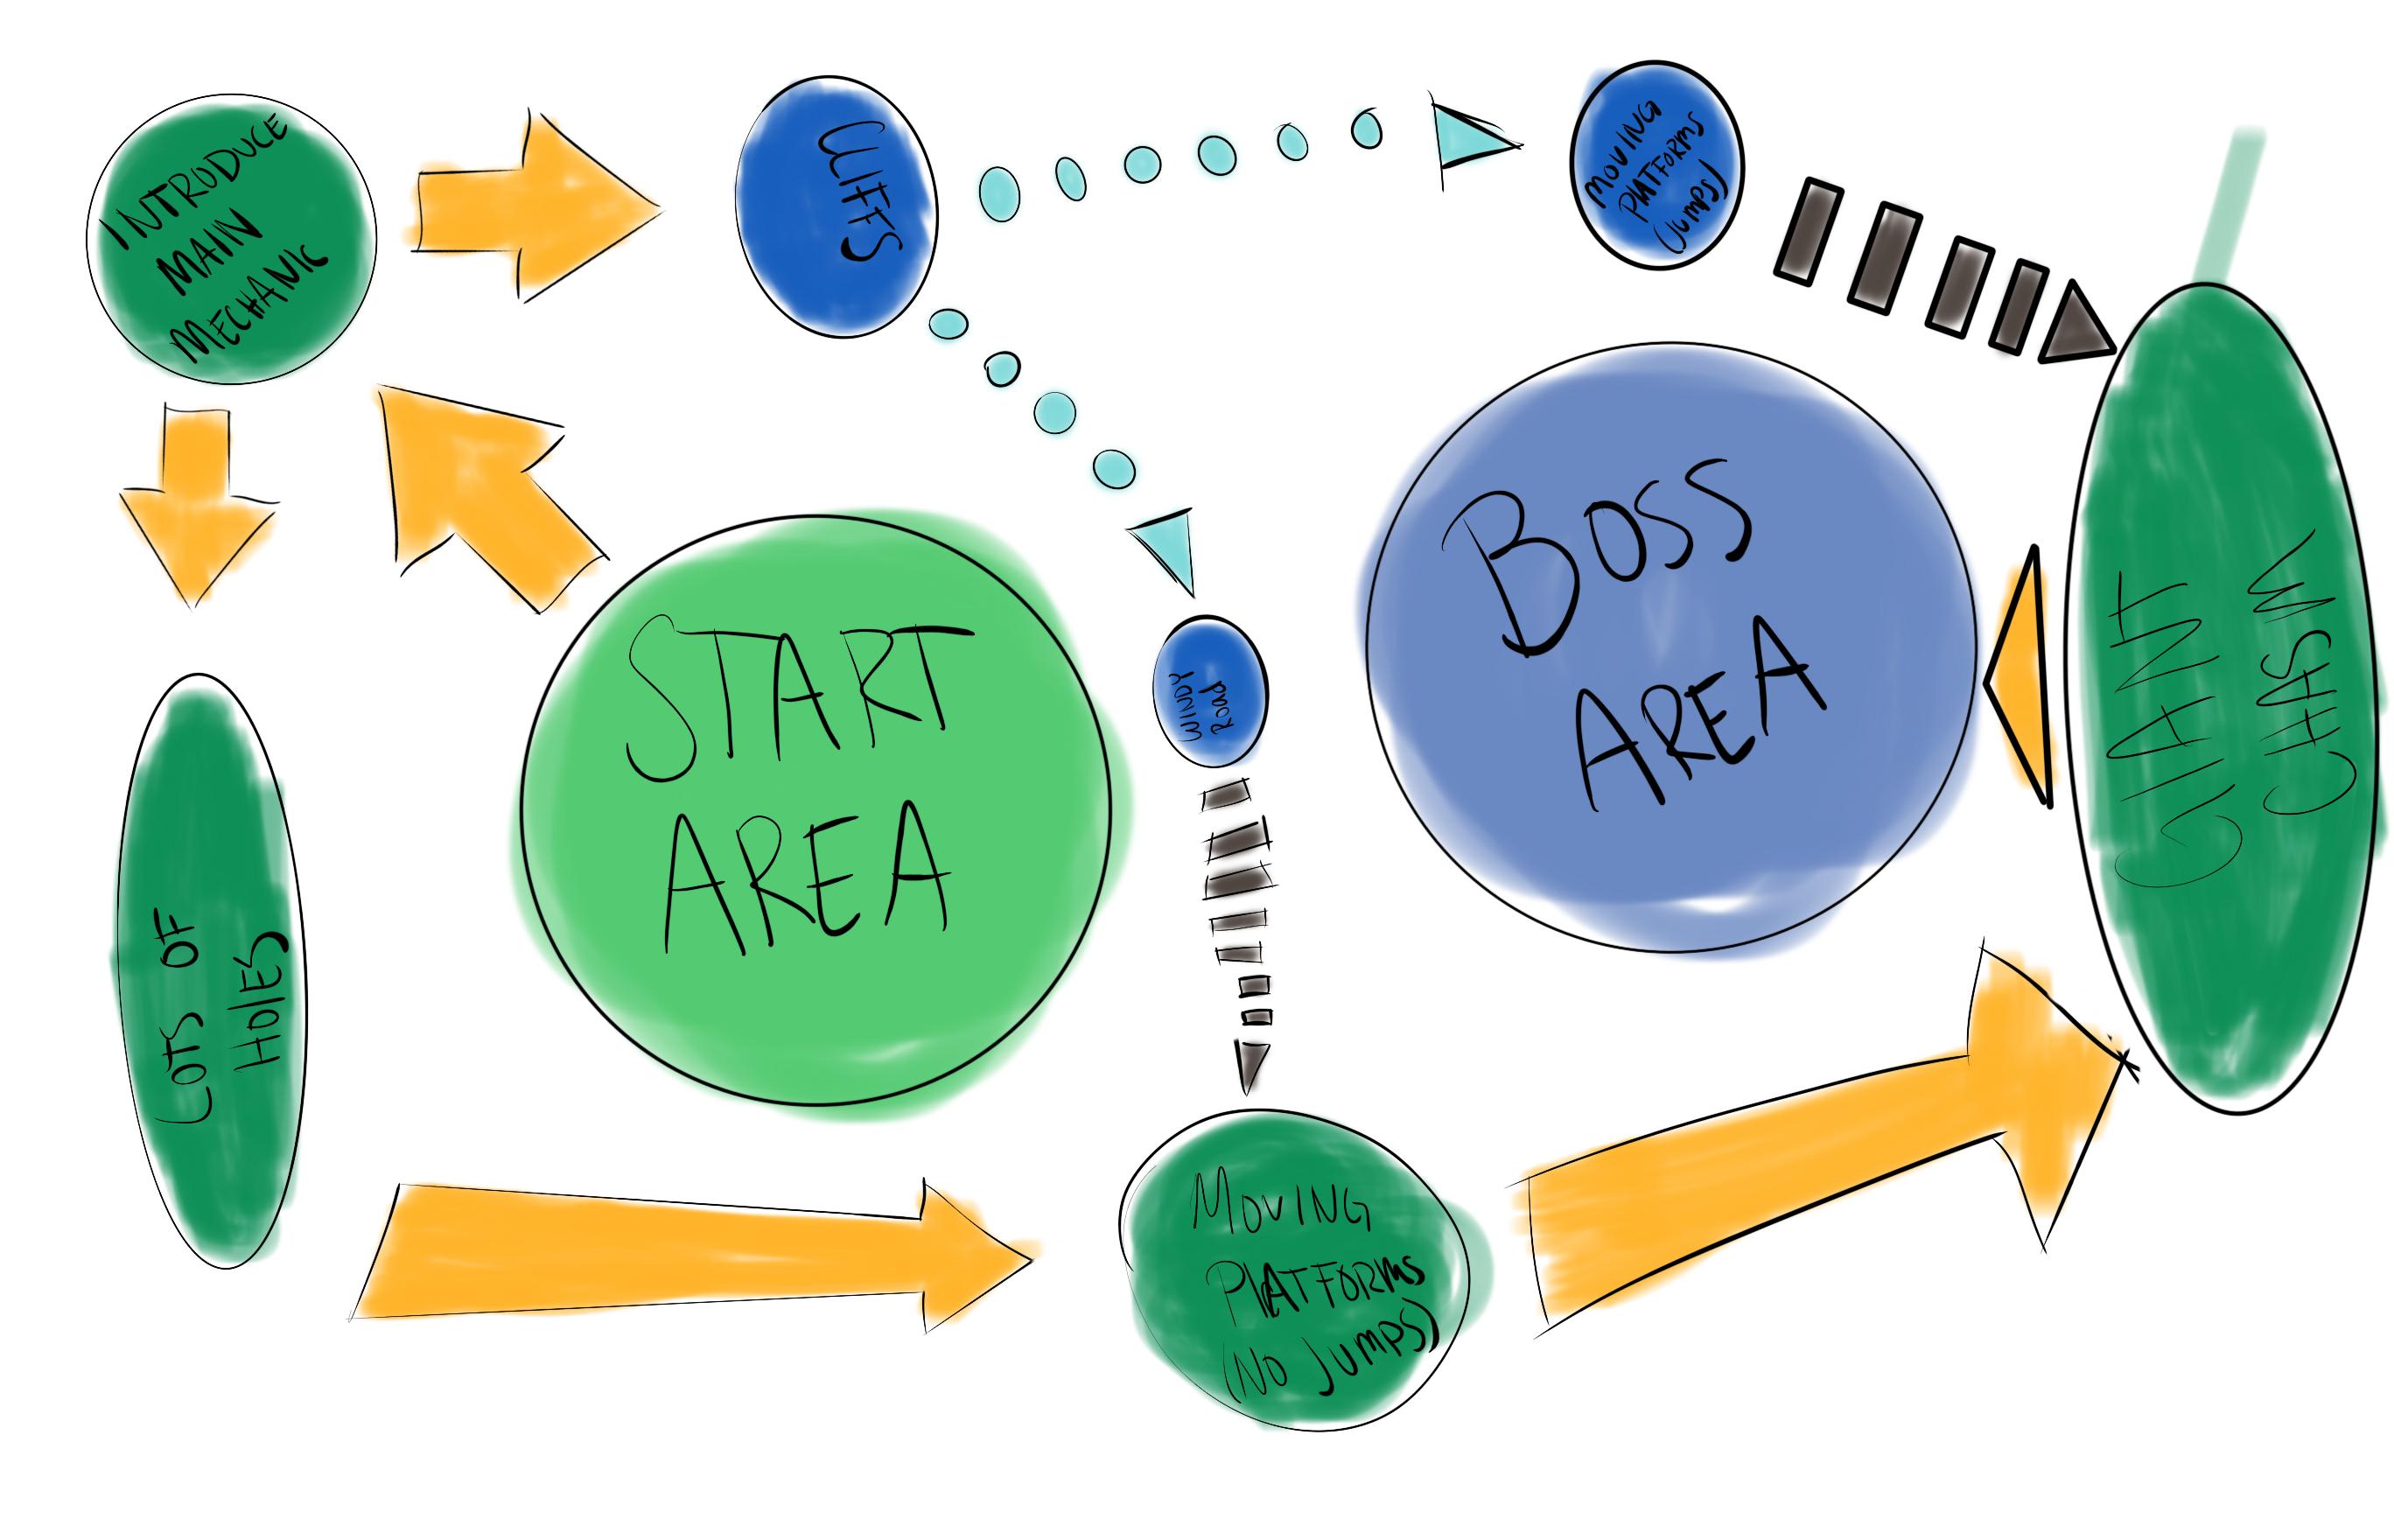 INTRODUCE
MAIN
MECHANIC
CLIFFS
MOVING
PLATFORMS
(Jumps)
START
AREA
WINDY
Road
BOSS
AREA
GIANT
CHASM
LOTS OF
HOlES
MOVING
PlATFORMS
(No JUMPS)